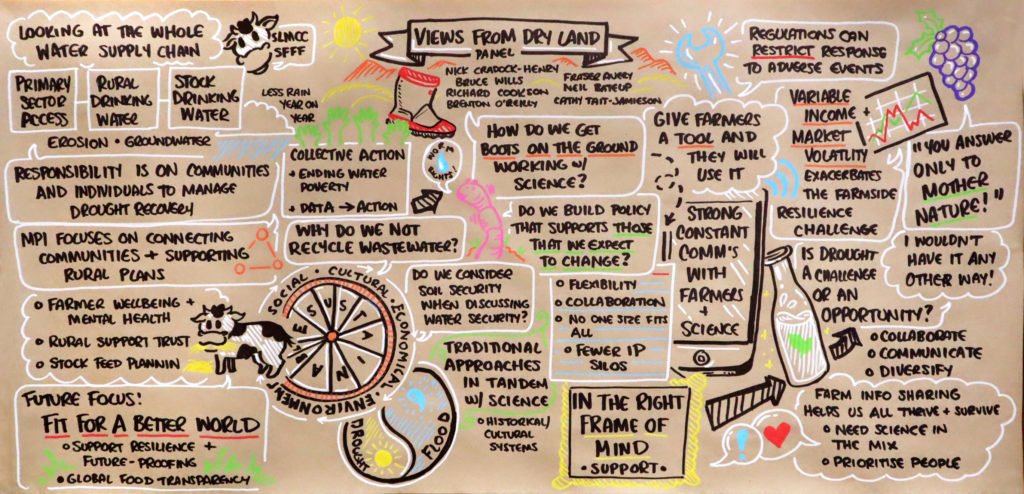 LOOKING AT THE WHOLE
WATER SUPPLY CHAIN
SLMCC
SFFF
PRIMARY
SECTOR
ACCESS
RURAL
DRINKING
WATER
STOCK
DRINKING
WATER
EROSION • GROUNDWATER
RESPONSIBILITY IS ON COMMUNITIES
AND INDIVIDUALS TO MANAGE
DROUGHT RECOVERY
MPI FOCUSES ON CONNECTING
COMMUNITIES + SUPPORTING
RURAL PLANS
FARMER WELLBEING +
MENTAL HEALTH
RURAL SUPPORT TRUST
STOCK FEED PLANNIN
FUTURE FOCUS:
FIT FOR A BETTER WORLD
SUPPORT RESILIENCE +
FUTURE-PROOFING
GLOBAL FOOD TRANSPARENCY
VIEWS FROM DRY LAND
PANEL
NICK CRADOCK-HENRY
BRUCE WILLS
RICHARD COOKSON
BRENTON O'REILLY
FRASER AVERY
NEIL BATEUP
CATHY TAIT-JAMIESON
LESS RAIN
YEAR ON
YEAR
COLLECTIVE ACTION
+ ENDING WATER
POVERTY
+ DATA → ACTION
WORM
RIGHTS!
HOW DO WE GET
BOOTS ON THE GROUND
WORKING W/
SCIENCE?
WHY DO WE NOT
RECYCLE WASTEWATER?
DO WE BUILD POLICY
THAT SUPPORTS THOSE
THAT WE EXPECT
TO CHANGE?
SOCIAL • CULTURAL • ECONOMICAL • ENVIRONMENT
SUSTAINABLE
DO WE CONSIDER
SOIL SECURITY
WHEN DISCUSSING
WATER SECURITY?
FLEXIBILITY
COLLABORATION
NO ONE SIZE FITS
ALL
FEWER IP
SILOS
TRADITIONAL
APPROACHES
IN TANDEM
W/ SCIENCE
HISTORICAL/
CULTURAL
SYSTEMS
DROUGHT
FLOOD
IN THE RIGHT
FRAME OF
MIND
• SUPPORT •
GIVE FARMERS
A TOOL AND
THEY WILL
USE IT
STRONG
CONSTANT
COMM'S
WITH
FARMERS
+
SCIENCE
REGULATIONS CAN
RESTRICT RESPONSE
TO ADVERSE EVENTS
VARIABLE
INCOME +
MARKET
VOLATLITY
EXACERBATES
THE FARMSIDE
RESILIENCE
CHALLENGE
"YOU ANSWER
ONLY TO
MOTHER
NATURE!"
I WOULDN'T
HAVE IT ANY
OTHER WAY!
IS DROUGHT
A CHALLENGE
OR AN
OPPORTUNITY?
COLLABORATE
COMMUNICATE
DIVERSIFY
FARM INFO SHARING
HELPS US ALL THRIVE + SURVIVE
NEED SCIENCE IN
THE MIX
PRIORITISE PEOPLE
!